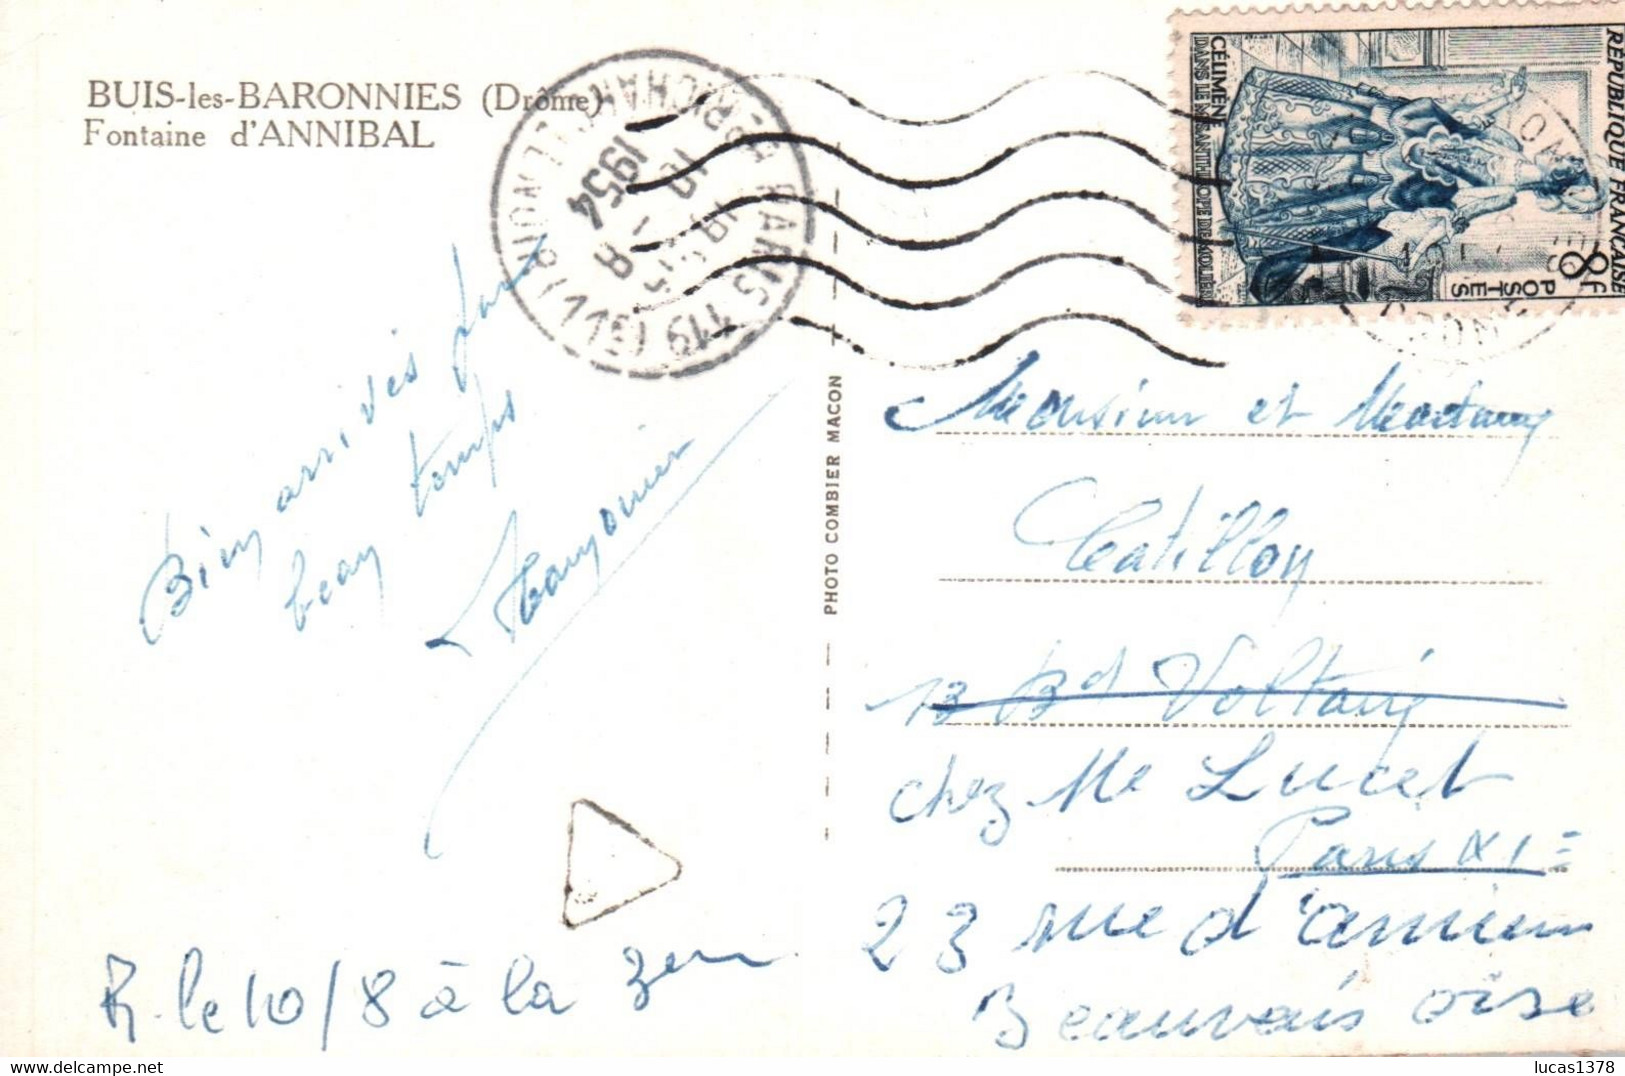 BUIS-les-BARONNIES (Drôme)
Fontaine d'ANNIBAL
PARIS 119
1954
RÉPUBLIQUE FRANÇAISE
8F
POSTES
CÉLIMÈNE
DANS LE MISANTHROPE DE MOLIÈRE
Bien arrivés par
beau temps
PHOTO COMBIER MACON
Monsieur et Madame
Catillon
13 Bd Voltaire
chez Me Lucet
Paris XIe
23 rue d'amiens
Beauvais oise
R. le 10/8 à la
lucas1378